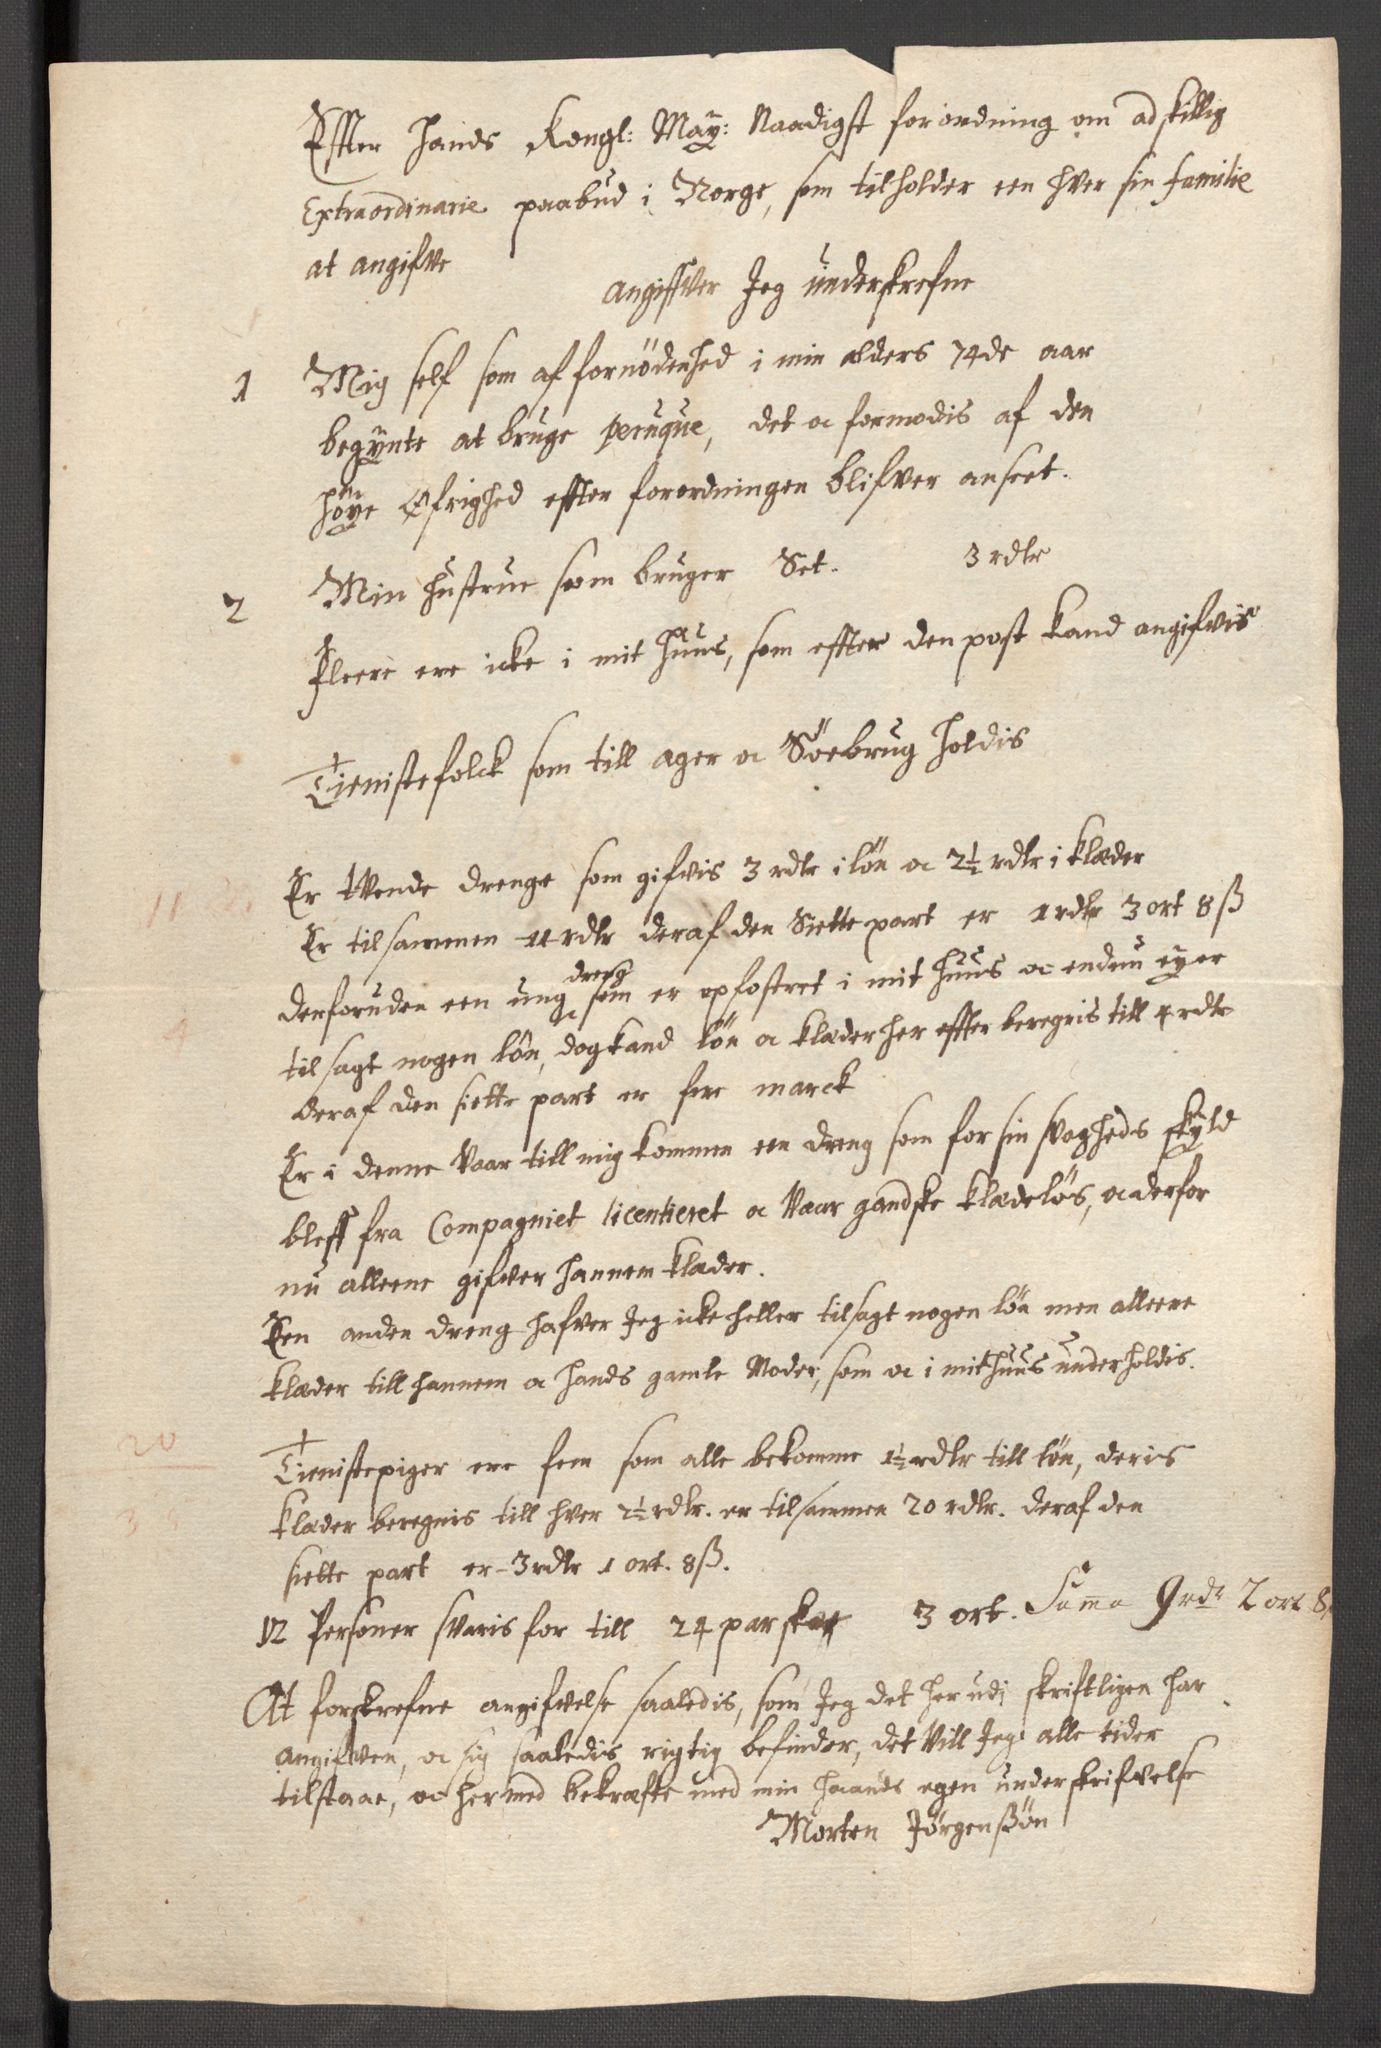 Effter hands Kongl: May: Naadigst forordning om adskillig
Extraordinarie paabud i Norge, som tilholder een hver sin familie
at angifve
angiffver Jeg underskrefne
1 Mig self som af fornödenhed i min alders 74de aar
begynte at bruge peruque, det oc formodis af den
höye Öfrighed effter forordningen blifver anseet.
2 Min hustrue som bruger Set. 3 rdlr
Fleere ere icke i mit huus, som effter den post kand angifvis
Tienistefolck som till ager oc Söebrug holdis
Er tvende drenge som gifvis 3 rdlr i lön oc 2½ rdlr i klæder
11
Er tilsammen 11 rdlr deraf den Siette part er 1 rdlr 3 ort 8 ß
denforuden een ung dreng som er opfostret i mit huus oc endnu ey er
4
tilsagt nogen lön, dog kand lön oc klæder her effter beregnis till 4 rdlr
deraf den siette part er fire marck
Er i denne Vaar till mig kommen een dreng som for sin svagheds skyld
bleff fra Compagniet licentieret oc Vaar gandske klædelös, oc derfor
nu alleene gifver hannem klæder.
Een anden dreng hafver Jeg icke heller tilsagt nogen lön men alleene
klæder till hannem oc hands gamle Moder, som oc i mit huus underholdis.
20
Tienistepiger ere fem som alle bekomme 1½ rdlr till lön, deris
klæder beregnis till hver 2½ rdlr. er tilsammen 20 rdlr. deraf den
siette part er - 3 rdlr 1 ort. 8 ß.
12 Personer svaris for till 24 par skoe 3 ort. Suma 9 rdr 2 ort 8
At forskrefne angifvelse saaledis, som Jeg det her udi skriftligen har
angifven, oc sig saaledis rigtig befinder, det Vill Jeg alle tider
tilstaae, oc hermed bekræfte med min haands egen underskrifvelse
Morten Jörgenßön